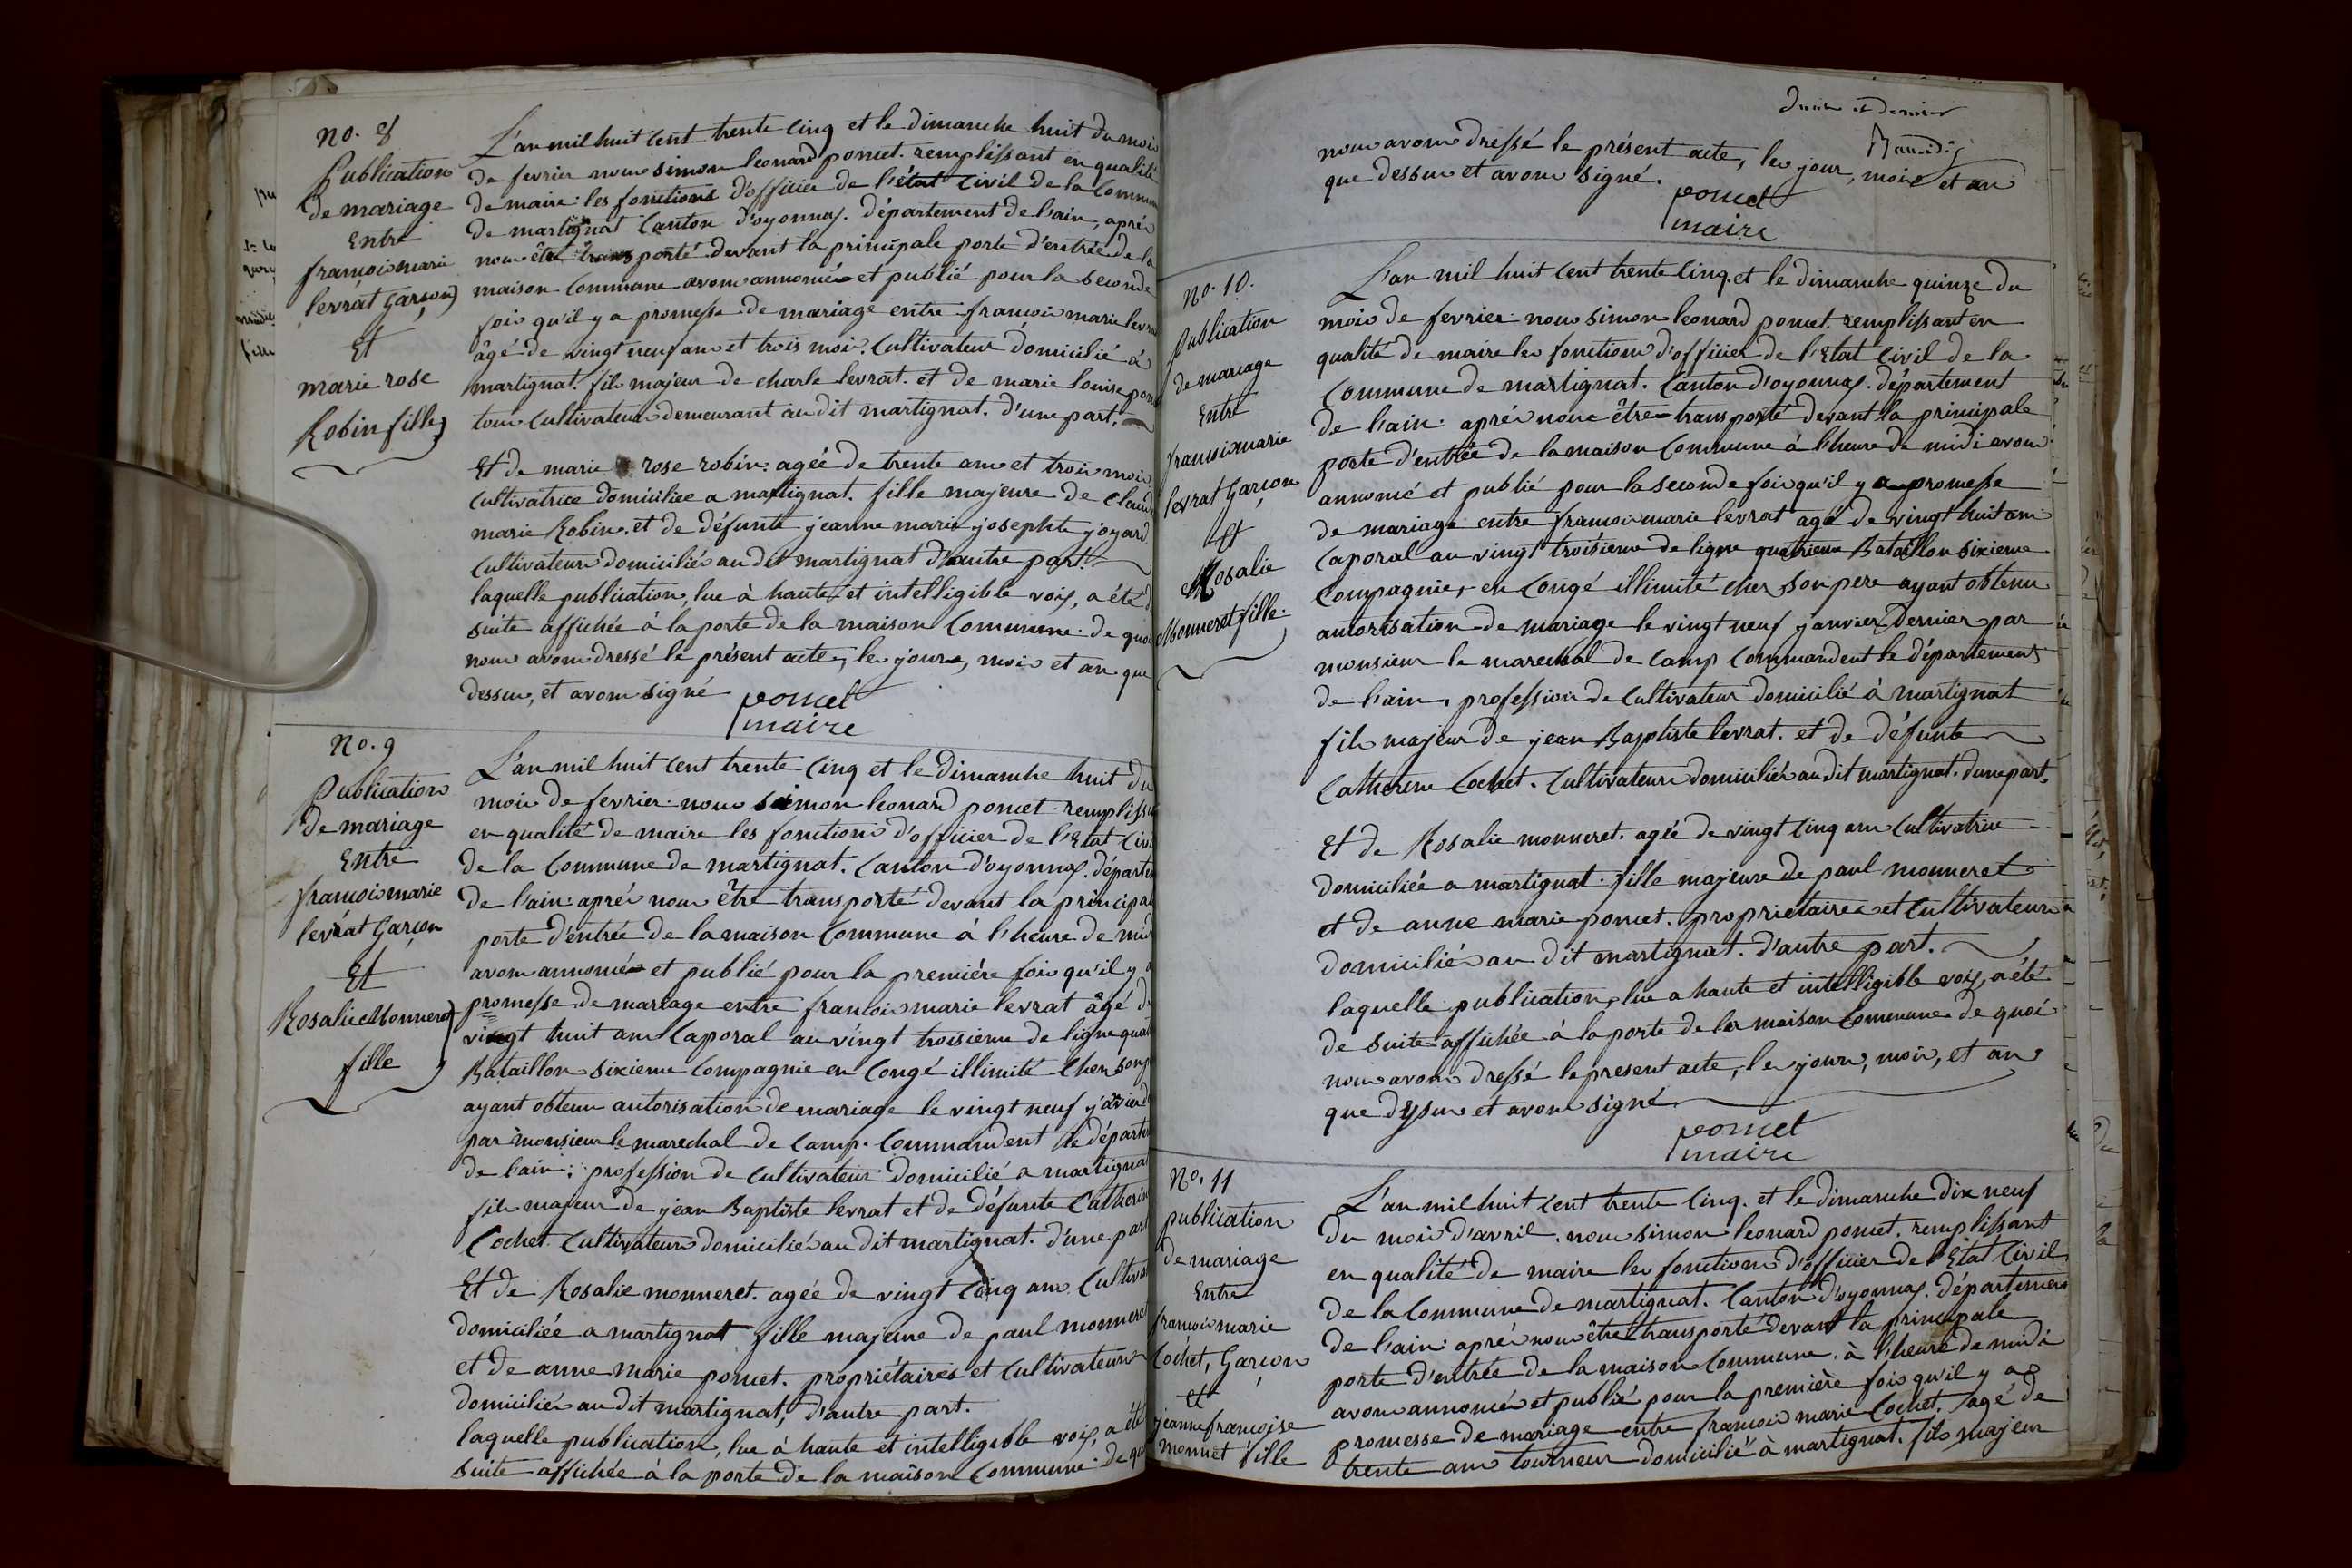 no. 8
Publication
de mariage
Entre
francois marie
levrat Garçon
Et
marie rose
Robin fille
L'an mil huit cent trente cinq et le dimanche huit du mois
de fevrier nous simon leonard poncet. remplissant en qualité
de maire: les fonctions d'officier de l'état civil de la Commune
de martignat Canton d'oyonnax. département de l'ain, aprés
nous être transporté devant la principale porte d'entrée de la
maison Commune avons annoncé et publié pour la seconde
fois qu'il y a promesse de mariage entre francois marie levrat
âgé de vingt neuf ans et trois mois. Cultivateur domicilié à
martignat. fils majeur de charle levrat. et de marie louise
tous Cultivateurs demeurant au dit martignat. d'une part.
Et de marie rose robin: agée de trente ans et trois mois
Cultivatrice domiciliée a martignat. fille majeure de Claude
marie Robin. et de défunte jeanne marie josephte joyard
Cultivateurs domiciliés au dit martignat d'autre part.
laquelle publication, lue à haute et intelligible voix, a été
suite affichée à la porte de la maison Commune. de quoi
nous avons dressé le présent acte, les jours, mois et an que
dessus, et avons signé
poncet
maire
no. 9
Publication
de mariage
Entre
francois marie
levrat Garçon
Et
Rosalie Monneret
fille
L'an mil huit cent trente cinq et le dimanche huit du
mois de fevrier. nous simon leonard poncet. remplissa
en qualité de maire les fonctions d'officier de l'Etat Civi
de la Commune de martignat. Canton d'oyonnax. départem
de l'ain: aprés nous être transporté devant la principal
porte d'entrée de la maison Commune à l'heure de midi
avons annoncé et publié pour la premiére fois qu'il y a
promesse de mariage entre francois marie levrat âgé de
vingt huit ans Caporal au vingt troisieme de ligne quat
Bataillon sixieme Compagnie en Congé illimité Chez son p
ayant obtenu autorisation de mariage le vingt neuf
par monsieur le marechal de Camp. Commandent le départem
de l'ain; profession de Cultivateur domicilié a martignat
fils majeur de jean Baptiste levrat et de défunte Catherine
Cochet. Cultivateurs domiciliés au dit martignat. d'une part
Et de Rosalie monneret. agée de vingt cinq ans Cultivat
domiciliée a martignat fille majeure de paul monneret
et de anne marie poncet. propriétaires et Cultivateurs
domiciliés au dit martignat, d'autre part.
laquelle publication, lue à haute et intelligible voix, a été
suite affichée à la porte de la maison Commune. de quo
nous avons dressé le présent acte, les jour, mois et an
que dessus et avons signé.
poncet
maire
no. 10.
publication
de mariage
Entre
francois marie
levrat Garçon
et
Rosalie
Monneret fille.
L'an mil huit cent trente cinq. et le dimanche quinze du
mois de fevrier. nous simon leonard poncet. remplissant en
qualité de maire les fonctions d'officier de l'Etat Civil de la
Commune de martignat. Canton d'oyonnax. département
de l'ain: aprés nous être transporté devant la principale
porte d'entrée de la maison Commune à l'heure de midi avons
annoncé et publié pour la seconde fois qu'il y a promesse
de mariage entre francois marie levrat agé de vingt huit ans
Caporal au vingt troisieme de ligne quatrieme Bataillon sixieme
Compagnie, en Congé illimité chez son pere ayant obtenu
autorisation de mariage le vingt neuf janvier dernier par
monsieur le marechal de Camp Commandent le département
de l'ain. profession de Cultivateur domicilié à martignat
fils majeur de jean Baptiste levrat. et de défunte
Catherine Cochet. Cultivateurs domiciliés au dit martignat. d'une part.
Et de Rosalie monneret. agée de vingt cinq ans Cultivatrice
domiciliée a martignat. fille majeure de paul monneret
et de anne marie poncet. proprietaires et Cultivateurs
domiciliés au dit martignat. d'autre part.
laquelle publication, lue a haute et intelligible voix, a été
de suite affichée à la porte de la maison Commune de quoi
nous avons dressé le present acte, les jours, mois, et an
que dessus et avons signé
poncet
maire
No. 11
publication
de mariage
Entre
francois marie
Cochet, Garçon
et
jeanne francoise
monnet fille
L'an mil huit cent trente cinq. et le dimanche dix neuf
du mois d'avril. nous simon leonard poncet. remplissant
en qualité de maire les fonctions d'officier de l'Etat Civil
de la Commune de martignat. Canton d'oyonnax. département
de l'ain: aprés nous être transporté devant la principale
porte d'entrée de la maison Commune. à l'heure de midi
avons annoncé et publié pour la première fois qu'il y a
promesse de mariage entre francois marie Cochet. agé de
trente ans tourneur domicilié à martignat. fils majeur